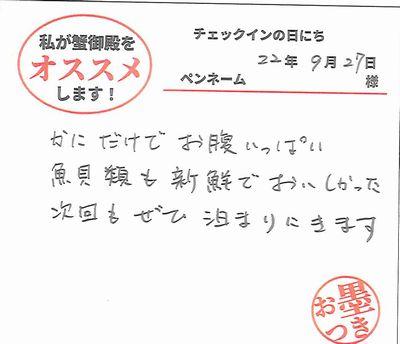 私が蟹御殿を
オススメ
します！
チェックインの日にち
22年 9月27日
ペンネーム 様
かにだけでお腹いっぱい
魚貝類も新鮮でおいしかった
次回もぜひ泊まりにきます
お墨つき